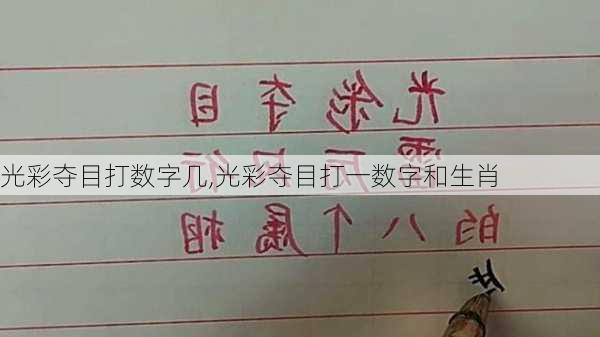 光彩夺目
雷厉风行
光彩夺目打数字几,光彩夺目打一数字和生肖
的八个属相